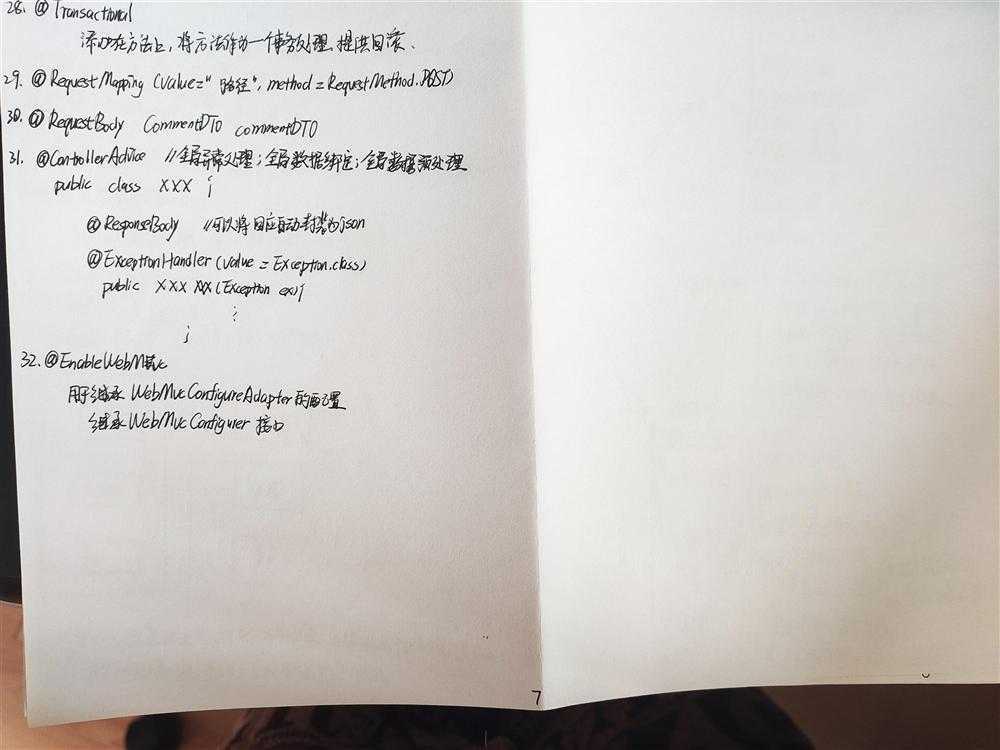 28. @Transactional
添加在方法上, 将方法作为一个事务处理, 提供回滚.
29. @RequestMapping (value="路径", method=RequestMethod.POST)
30. @RequestBody CommentDTO commentDTO
31. @ControllerAdvice //全局异常处理;全局数据绑定;全局数据预处理
public class XXX {
@ResponseBody //可以将回应自动封装为json
@ExceptionHandler (value = Exception.class)
public XXX XXX (Exception ex){
⋮
}
32. @EnableWebMvc
用于继承 WebMvcConfigureAdapter 的配置
继承 WebMvcConfigurer 接口
7